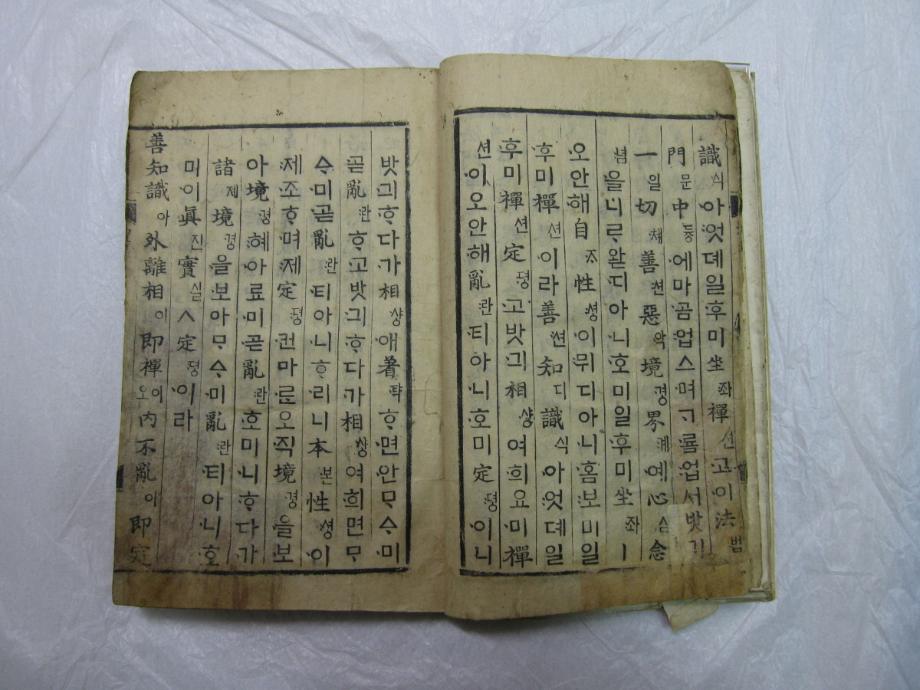 識식아엇뎨일후미坐좌禪션고이法법
門문中듕에마곰업스며ᄀᆞ룜업서밧긔
一일切쳬善션惡악境경界계예心심念
념을니ᄅᆞ완디아니호미일후미坐좌ㅣ
오안해自ᄌᆞ性셩이뮈디아니홈보미일
후미禪션이라善션知디識식아엇뎨일
후미禪션定뎡고밧긔相샹여희요미禪
션이오안해亂란티아니호미定뎡이니
밧긔ᄒᆞ다가相샹애著탹ᄒᆞ면안ᄆᆞᅀᆞ미
곧亂란ᄒᆞ고밧긔ᄒᆞ다가相샹여희면ᄆᆞ
ᅀᆞ미곧亂란티아니ᄒᆞ리니本본性셩이
제조ᄒᆞ며제定뎡컨마ᄅᆞᆫ오직境경을보
아境경혜아료미곧亂란호미니ᄒᆞ다가
諸졔境경을보아ᄆᆞᅀᆞ미亂란티아니호
미이眞진實실ㅅ定뎡이라
善知識아外離相이即禪이오內不亂이即定